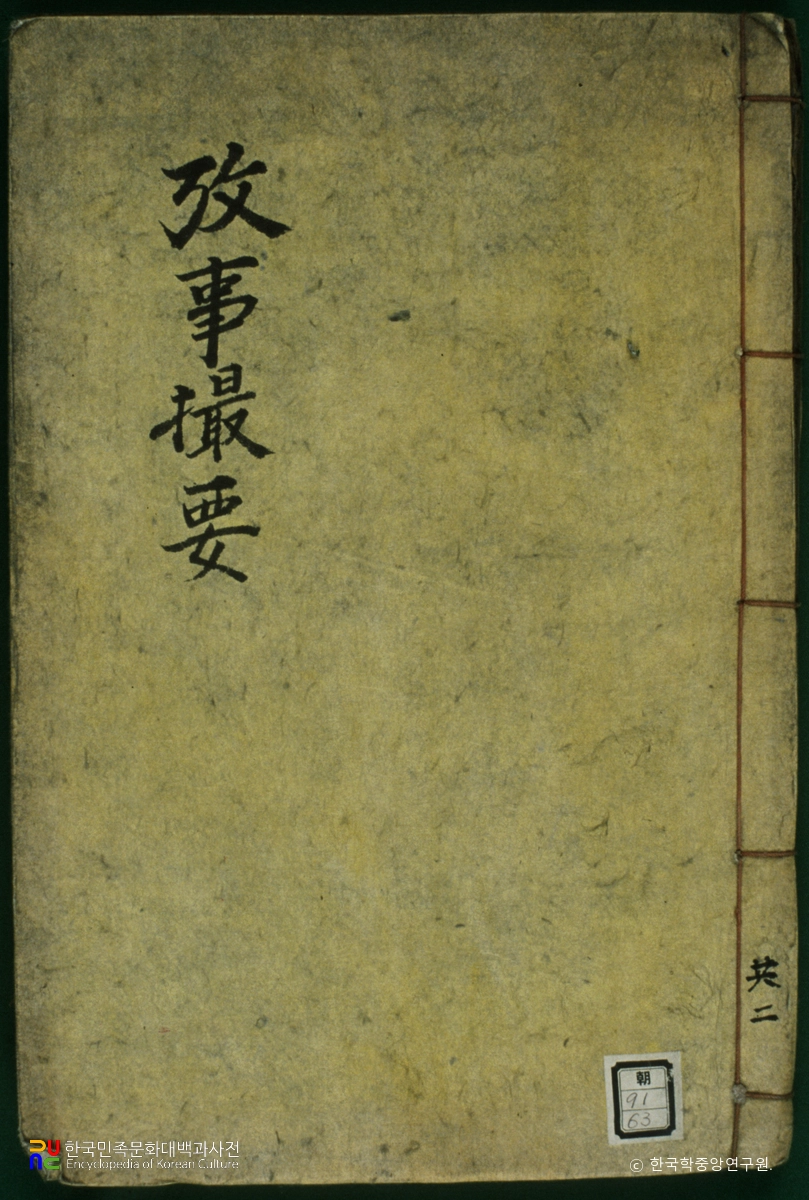 攷事撮要
共二
朝
91
63
한국민족문화대백과사전
Encyclopedia of Korean Culture
© 한국학중앙연구원.